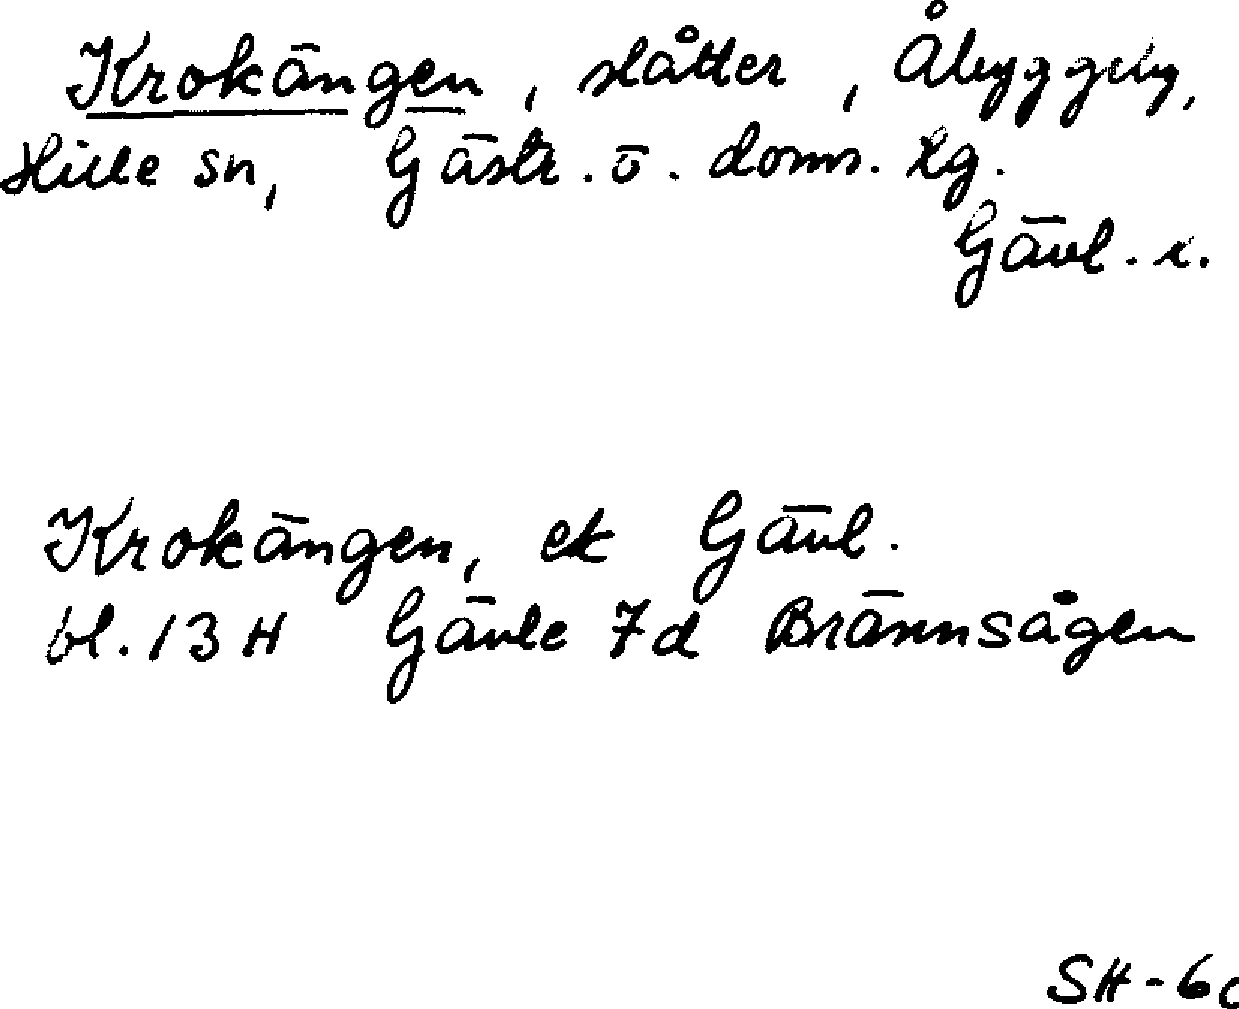 Krokängen, slåtter, Åbyggeby,
Hille sn, Gästr. ö. doms. lg.
Gävl. l.
Krokängen, ek Gävl.
bl. 13 H Gävle 7d Brännsågen
SH-60